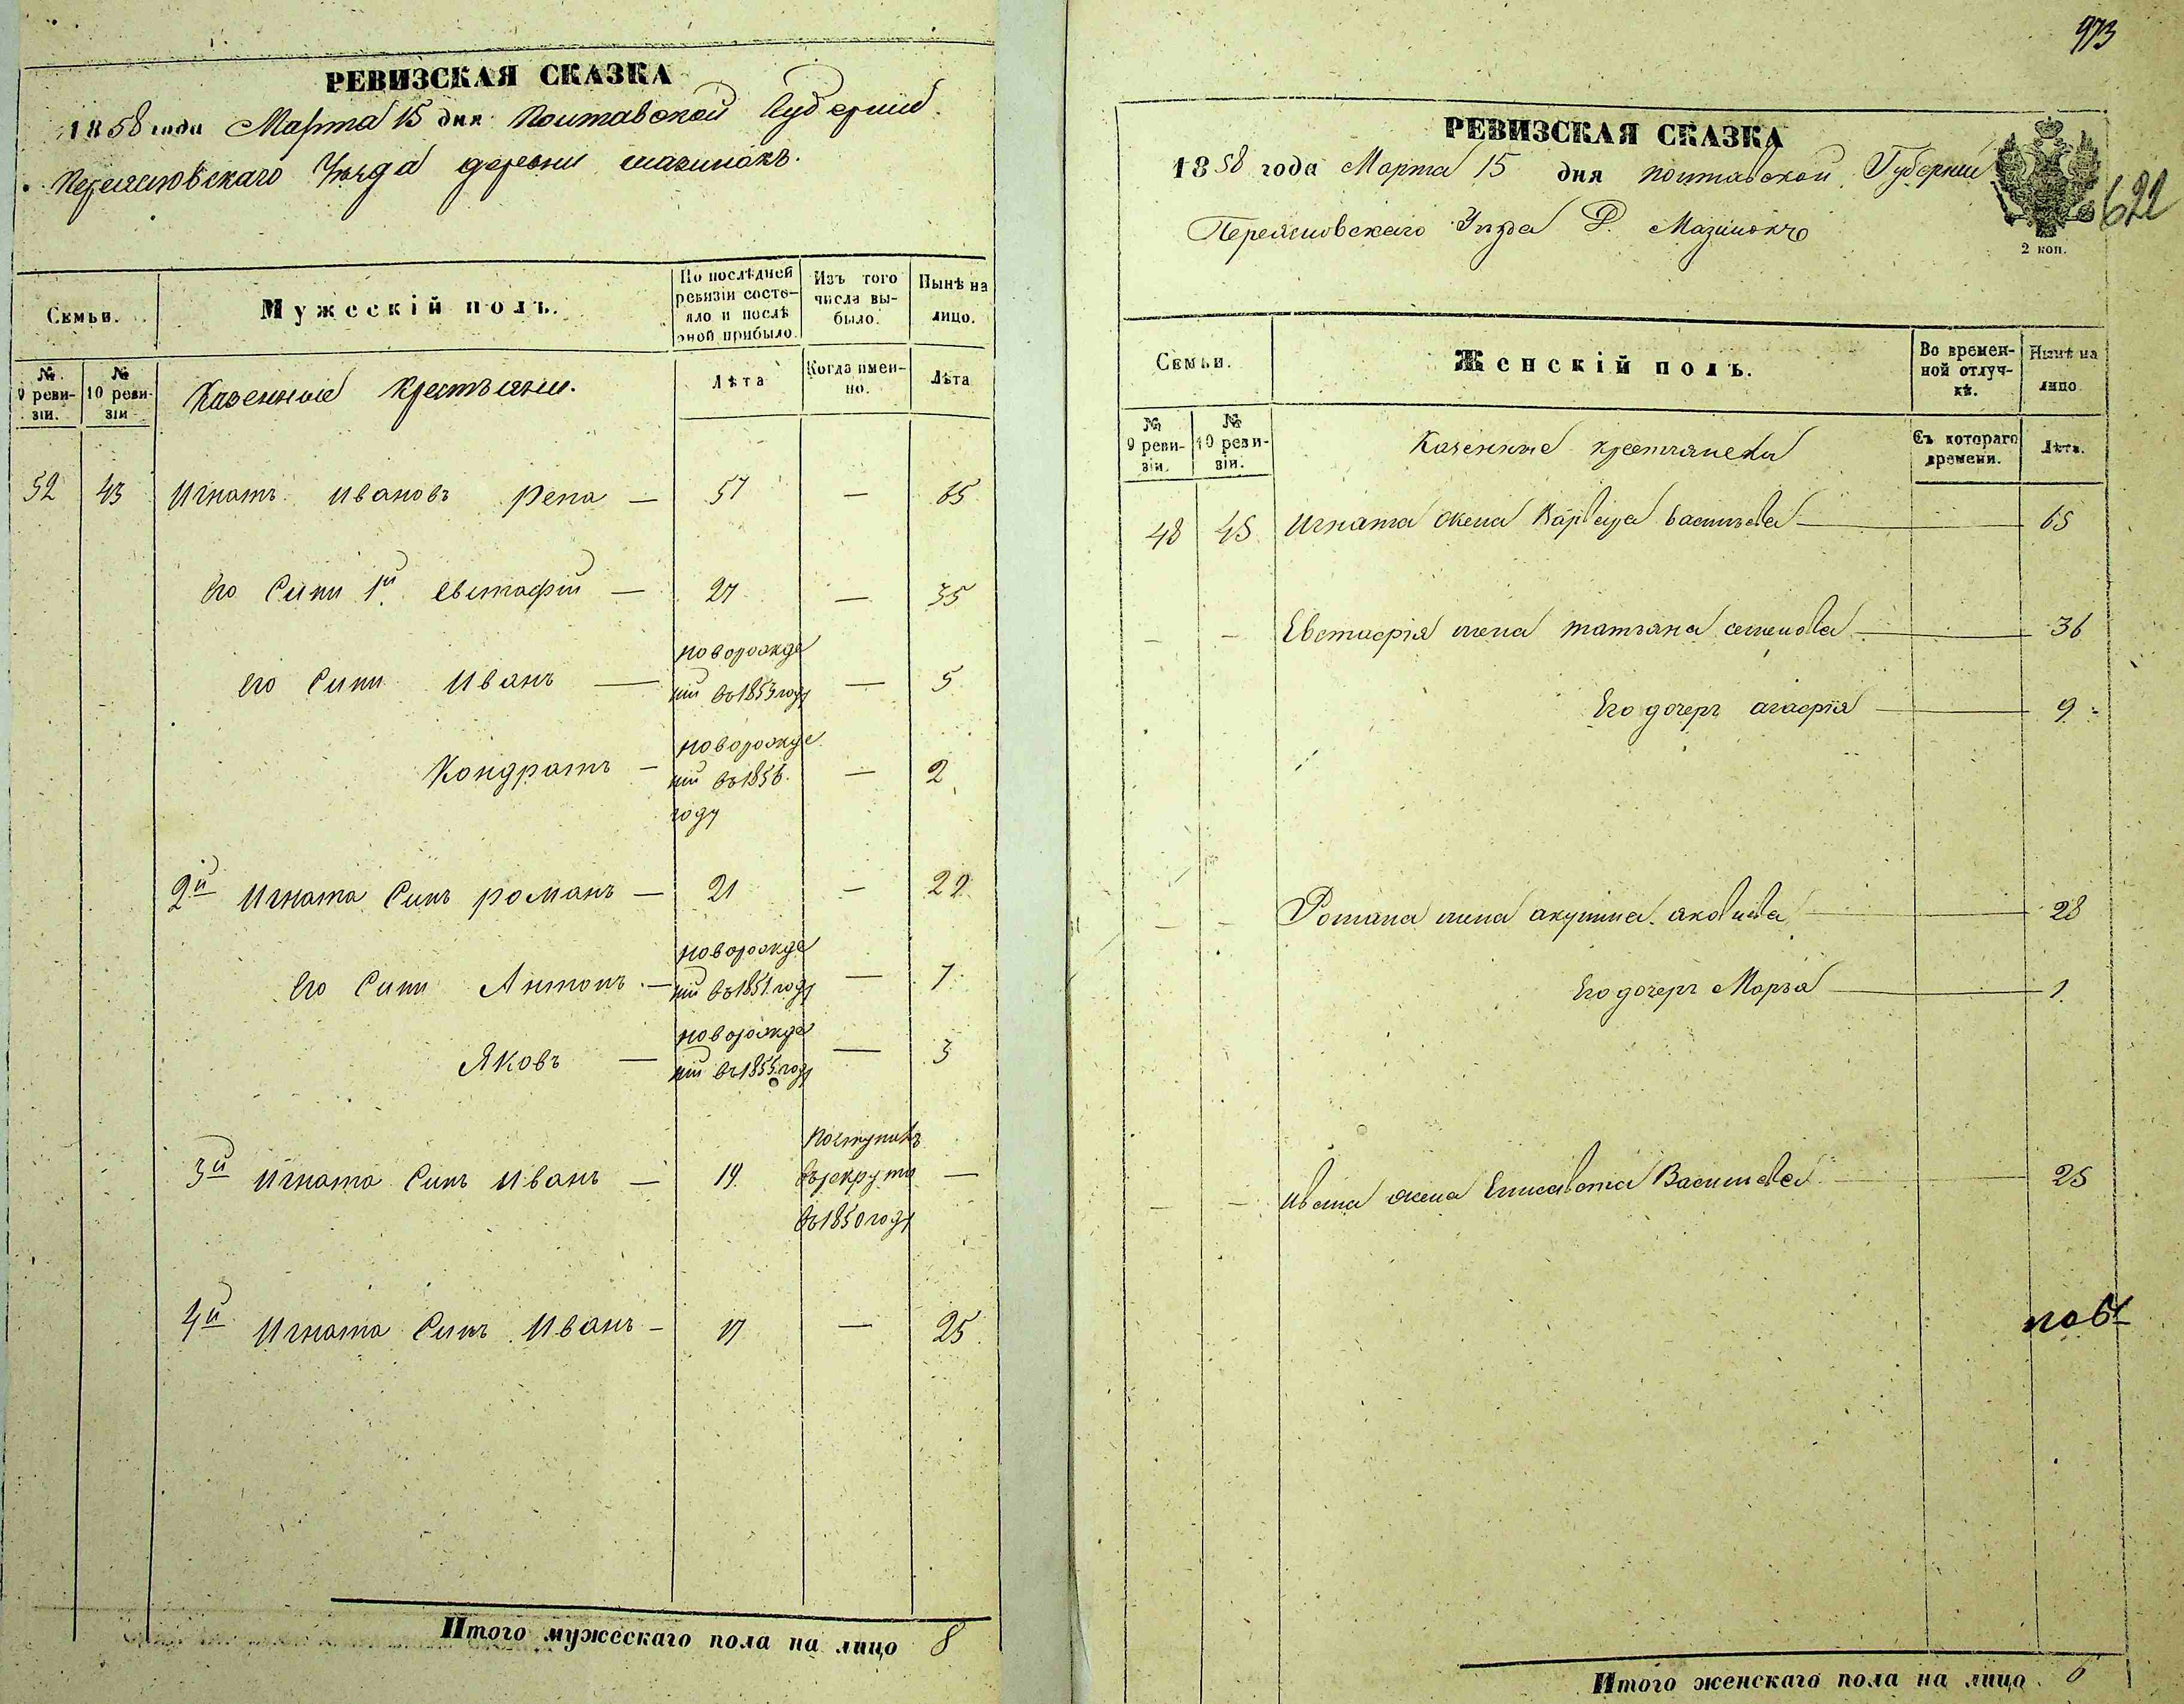 РЕВИЗСКАЯ СКАЗКА
1858 года Марта 15 дня Полтавской Губернии
Переясловскаго Уезда деревни Мазинокъ.
Семьи.
Мужескій полъ.
По послѣдней ревизіи состояло и послѣ оной прибыло.
Изъ того числа выбыло.
Нынѣ на лицо.
№ 9 ревизіи.
№ 10 ревизіи
Казенные крестьяни.
Лѣта
Когда именно.
Лѣта
52 43 Игнатъ Ивановъ Репа — 57 — 65
Его Сыни 1й Евстафій — 27 — 35
Его Сыни Иванъ — новорожденій въ 1853 году — 5
Кондратъ — новорожденій въ 1856 году — 2
2й Игната Сынъ Романъ — 21 — 29
Его Сыни Антонъ — новорожденій въ 1851 году — 7
Яковъ — новорожденій въ 1855 году — 3
3й Игната Сынъ Иванъ — 19 Поступилъ въ рекруты въ 1850 году —
4й Игната Сынъ Иванъ — 17 — 25
Итого мужескаго пола на лицо 8
973
РЕВИЗСКАЯ СКАЗКА
1858 года Марта 15 дня Полтавской Губернии
622
Переясловскаго Уезда Д. Мазинокъ
2 коп.
Семьи.
Женскій полъ.
Во временной отлучкѣ.
Нынѣ на лицо
№ 9 ревизіи.
№ 10 ревизіи.
Казенные крестьянски
Съ котораго времени.
Лѣта.
48 43 Игната жена Варвара Васильева — 65
— — Евстафія жена Татьяна Семенова — 36
Его дочерь Агафія — 9
— — Романа жена Акулина Яковлева — 28
Его дочерь Марья — 1
— — Ивана жена Елисавета Васильева — 25
Итого женскаго пола на лицо 6